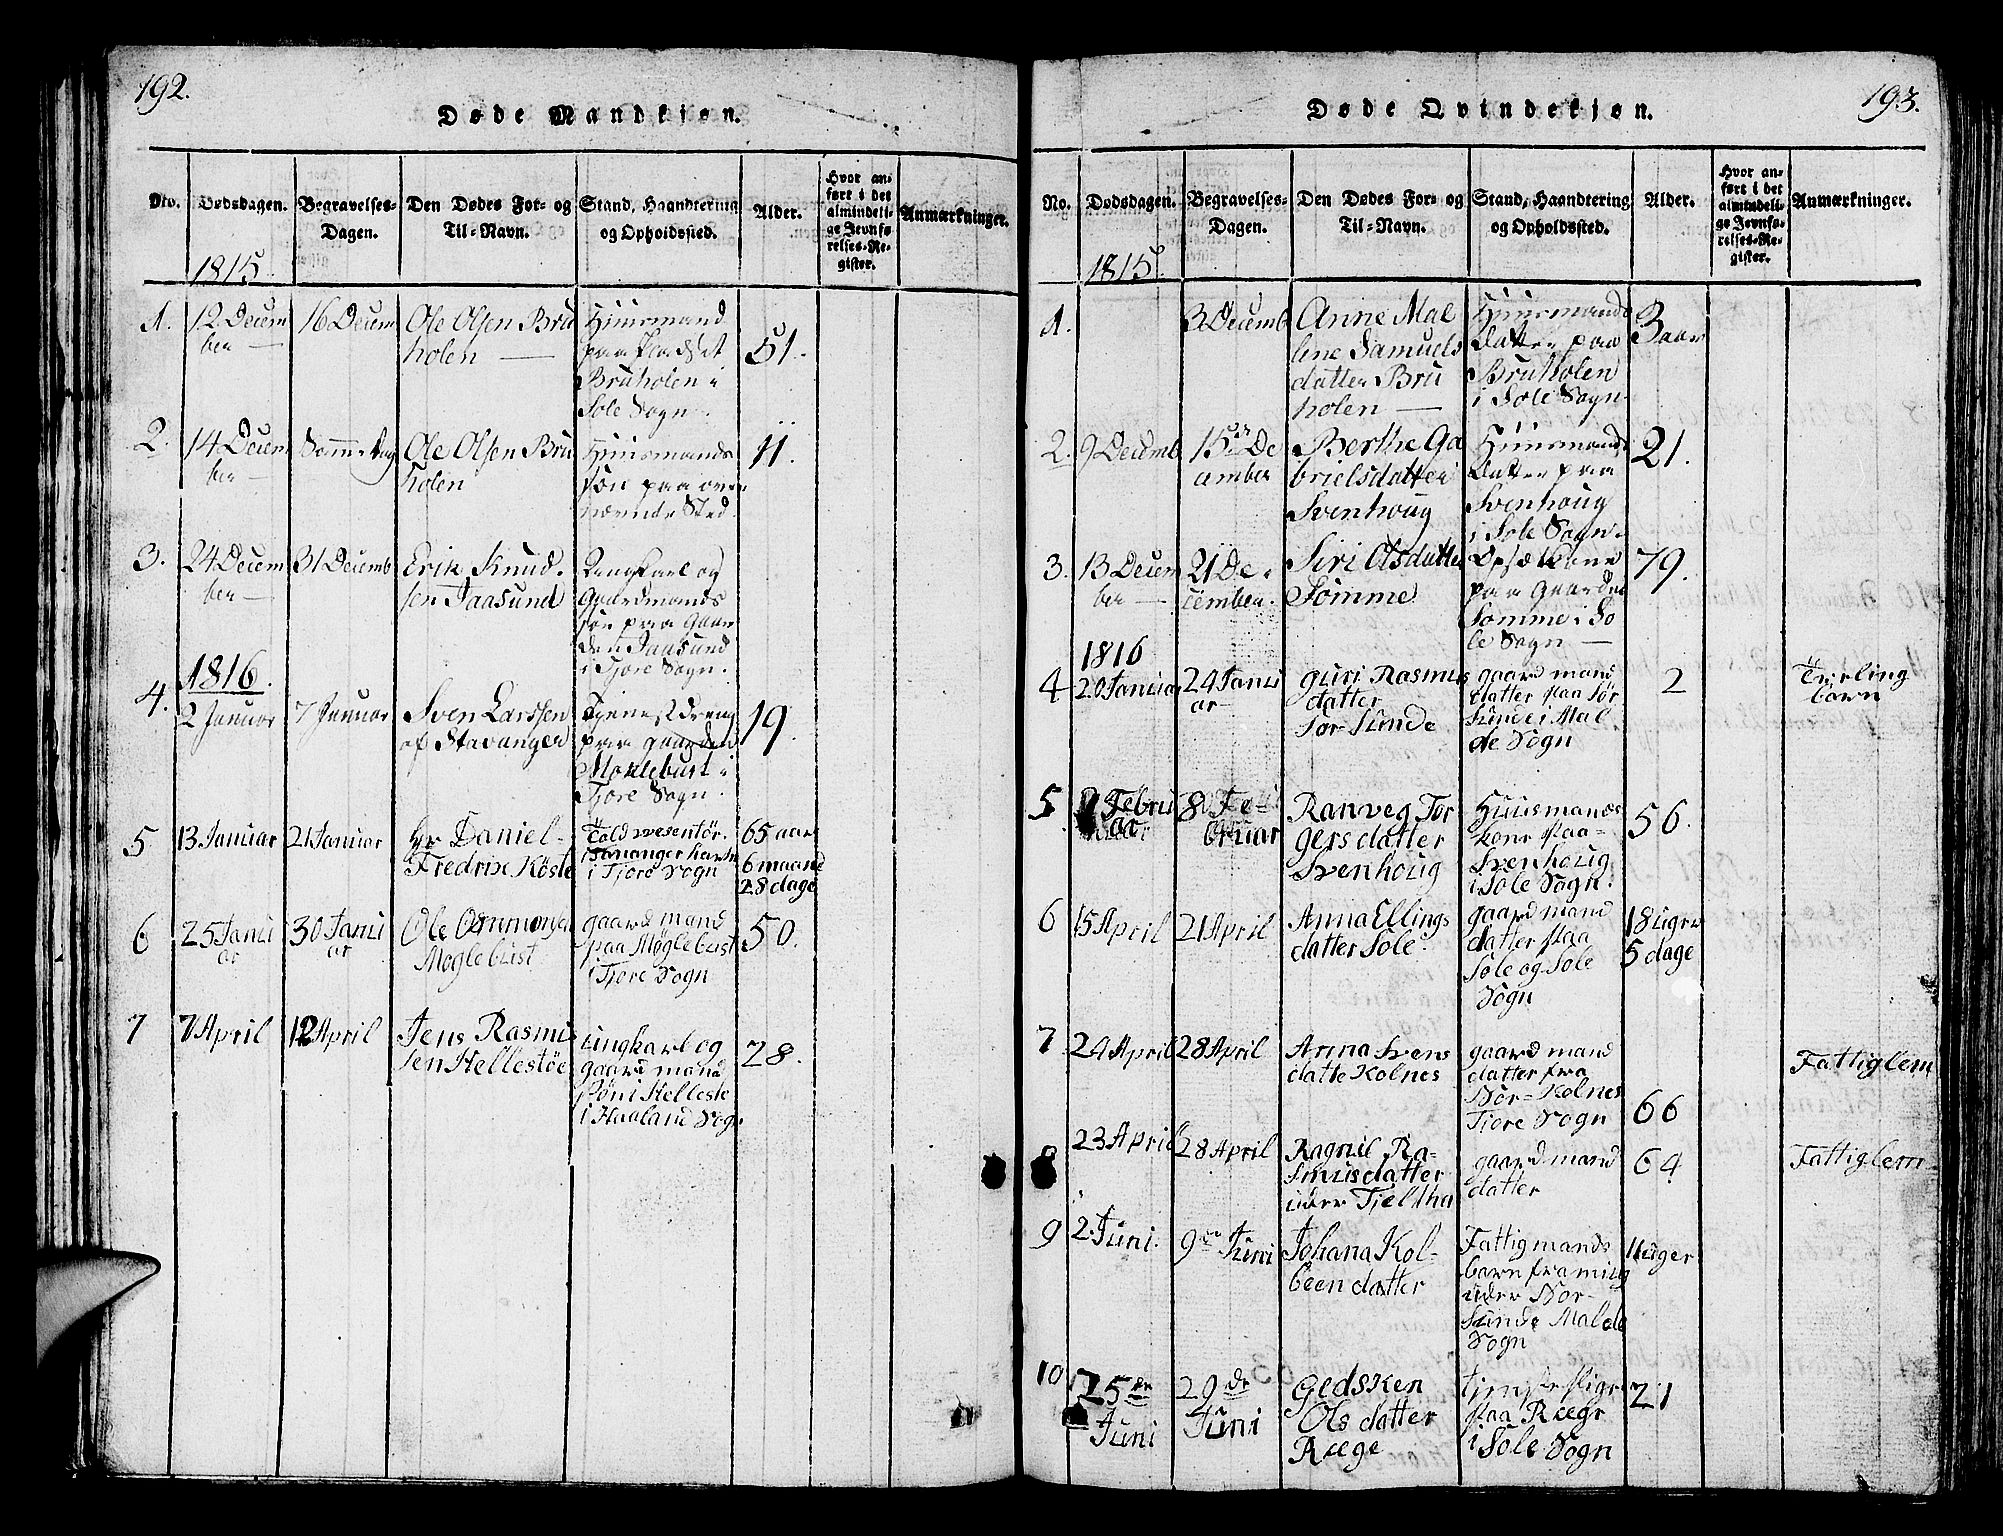 192.
Døde Mandkiøn.
No.
Dødsdagen.
Begravelses-
Dagen.
Den Dødes For- og
Til-Navn.
Stand, Haandtering
og Opholdssted.
Alder.
Hvor an-
ført i det
almindeli-
ge Jevnfø-
relses-Re-
gister.
Anmærkninger.
1815.
1.
12 Decem
ber
16 Decem
Ole Olsen Bru
holen
Huusmand
paa Pladset
Bruholen i
Sole Sogn.
51.
2.
14 Decem
ber
Samme Dag
Ole Olsen Bru
holen
Huusmands
søn paa oven
nævnde Sted.
11.
3.
24 Decem
ber
31 Decemb
Erik Knud-
sen Jaasund
Ungkarl og
Gaardmands
søn paa Gaar
den Jaasund
i Tjore Sogn.
1816.
4.
2 Januar
7 Januar
Sven Larssen
af Stavanger
Tjenestdreng
paa gaarden
Moklebust i
Tjore Sogn.
19.
5
13 Januar
21 Januar
Hr Daniel
Fredrix
Told
Stavanger
i Tjore Sogn
65 aar
6 maand
28 dage
6
25 Janu
ar
30 Janu
ar
Ole
Moglebust
gaard mand
paa Møglebust
i Tjore Sogn
50.
7
7 April
12 April
Jens Rasmus
sen Hellestøe
ungkarl og
gaard mand
søn i Helleste
i Haaland Sogn
28.
193.
Døde Qvindekjøn.
No.
Dødsdagen.
Begravelses-
Dagen.
Den Dødes For- og
Til-Navn.
Stand, Haandtering
og Opholdssted.
Alder.
Hvor an-
ført i det
almindeli-
ge Jevnfø-
relses-Re-
gister.
Anmærkninger.
1815.
1.
3 Decemb
Anne Mal
lene Samuels
datter Bru
holen
Huusmands
Datter paa
Bruholen
i Sole Sogn
3 aar
2.
9 Decemb
15 De
cember
Berthe Ga
brielsdatter
Svenhoug
Huusmands
Datter paa
Svenhoug
i Sole Sogn.
21.
3.
13 Decem
ber
21 De-
cember.
Siri Olsdatter
Sømme
Opsæt Kone
paa Gaarden
Somme i So
le Sogn
79.
1816
4
20 Januar
24 Janu
ar
guri Rasmus
datter
Sør-Sunde
gaard mand
datter paa Sør
Sunde i Mal
de Sogn
2
Tvilling
barn
5
7 Febru
ar
8 Fe
bruar
Ranveg Tor
gersdatter
Svenhoug
Huusmands
kone paa
Svenhoug
i Sole Sogn.
56.
6
15 April
21 April
Anna Ellings
datter Sole
gaard mand
datter paa
Sole og Sole
Sogn
18 uger
5 dage
7
24 April
28 April
Anna Svens
datte Kolnes
gaard mand
datter fra
Nor-Kolnes
Tjore Sogn
66
Fattiglem
8
23 April
28 April
Ragnil Ra-
smusdatter
under Tjeltha
gaard mand
datter
64
Fattiglem
9
2. Juni.
9de Juni
Johana Kol-
been datter
Fattigmands
barn fra
under Nor-
Sunde Malde
Sogn
11 uger
10
25de
Juni
29de
Juni
Gedsken
Ols datter
Ræge
tjeneste Pige
paa Ræge
i Sole Sogn
21